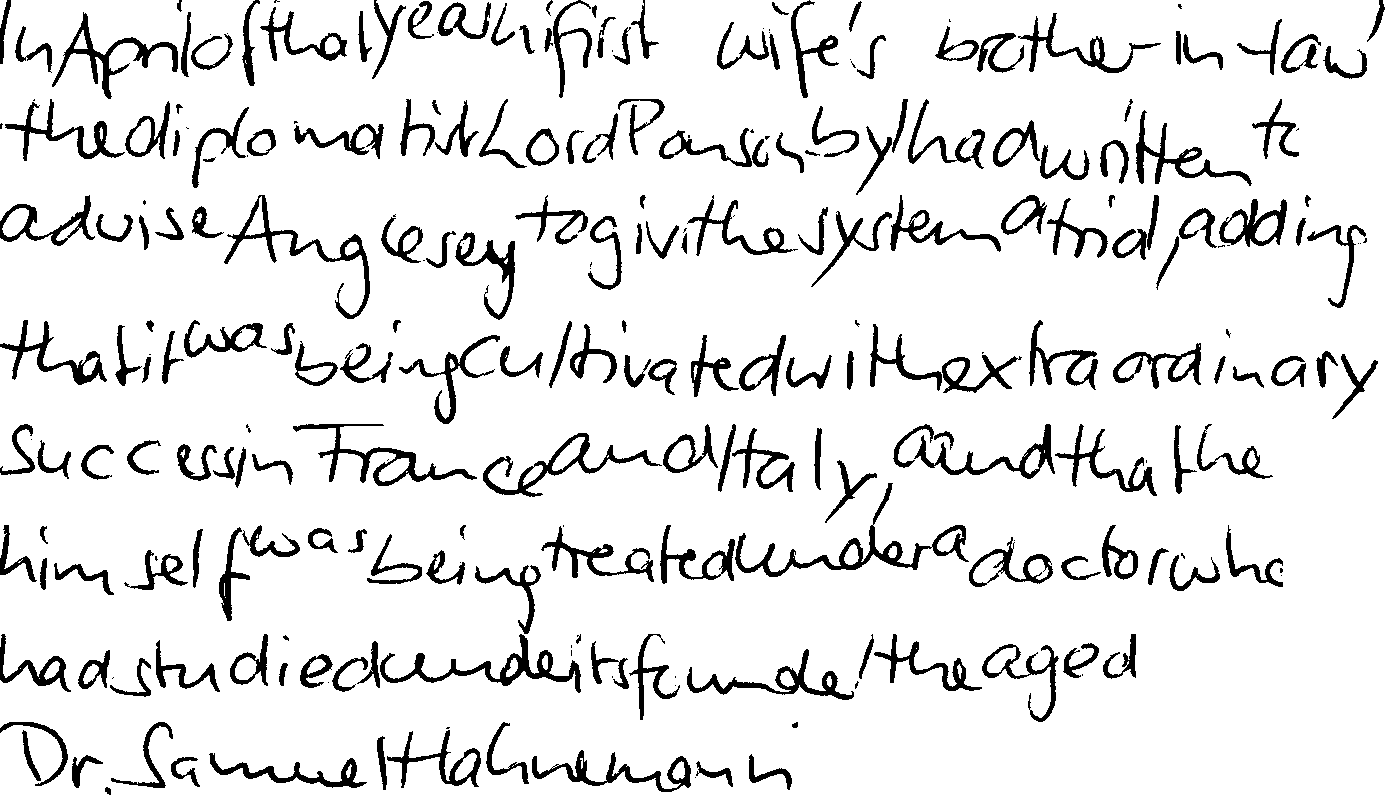 In April of that year hi first wife's brother-in-law
the diplomatist Lord Ponsonby had written to
advise Anglesey to givi the system a trial, adding
that it was being cultivated with extraordinary
success in France and Italy, aand that he
himself was being treated under a doctor who
had studied under its founder the aged
Dr. Samuel Hahnemann